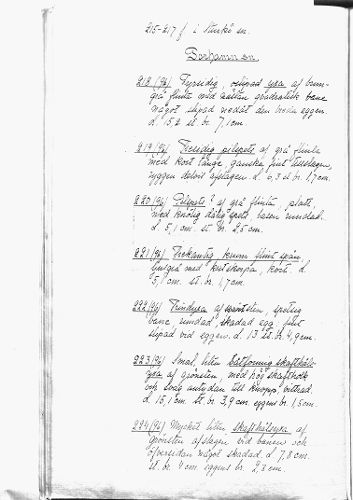 215-217 f. i Sturkö sn.
Backaryd sn.
218 (96) Fyrsidig, oslipad yxa af brun-
grå flinta med nästan qvadratisk bane
något slipad nedåt den breda eggen.
d. 15,2 st. br. 7,1 cm.
219 (96) Tresidig pilspets af grå flinta
med kort tånge, ganska fint tillslagen,
ryggen delvis afslagen. d. 6,3 st. br. 1,7 cm.
220 (96) Pilspets? af grå flinta, platt,
med knölig dålig spets basen rundad.
d. 5,1 cm. st. br. 2,5 cm.
221 (96) Trekantig krum flintspån
ljusgrå med kritskorpa, kort. d.
5,1 cm. st. br. 1,7 cm.
222 (96) Trindyxa af grönsten, spetsig
bane, rundad, skadad egg, fint
slipad vid eggen. d. 13 st. br. 4,9 cm.
223 (96) Smal, liten båtformig skafthåls-
yxa af grönsten med hög skaftholk
och svag antydan till knopp, vittrad.
d. 15,1 cm. st. br. 3,9 cm. eggens br. 1,5 cm.
224 (96) Mycket liten skafthålsyxa af
grönsten afslagen vid banen och
öfversidan något skadad. d. 7,8 cm.
st. br. 4 cm. eggens br. 2,3 cm.